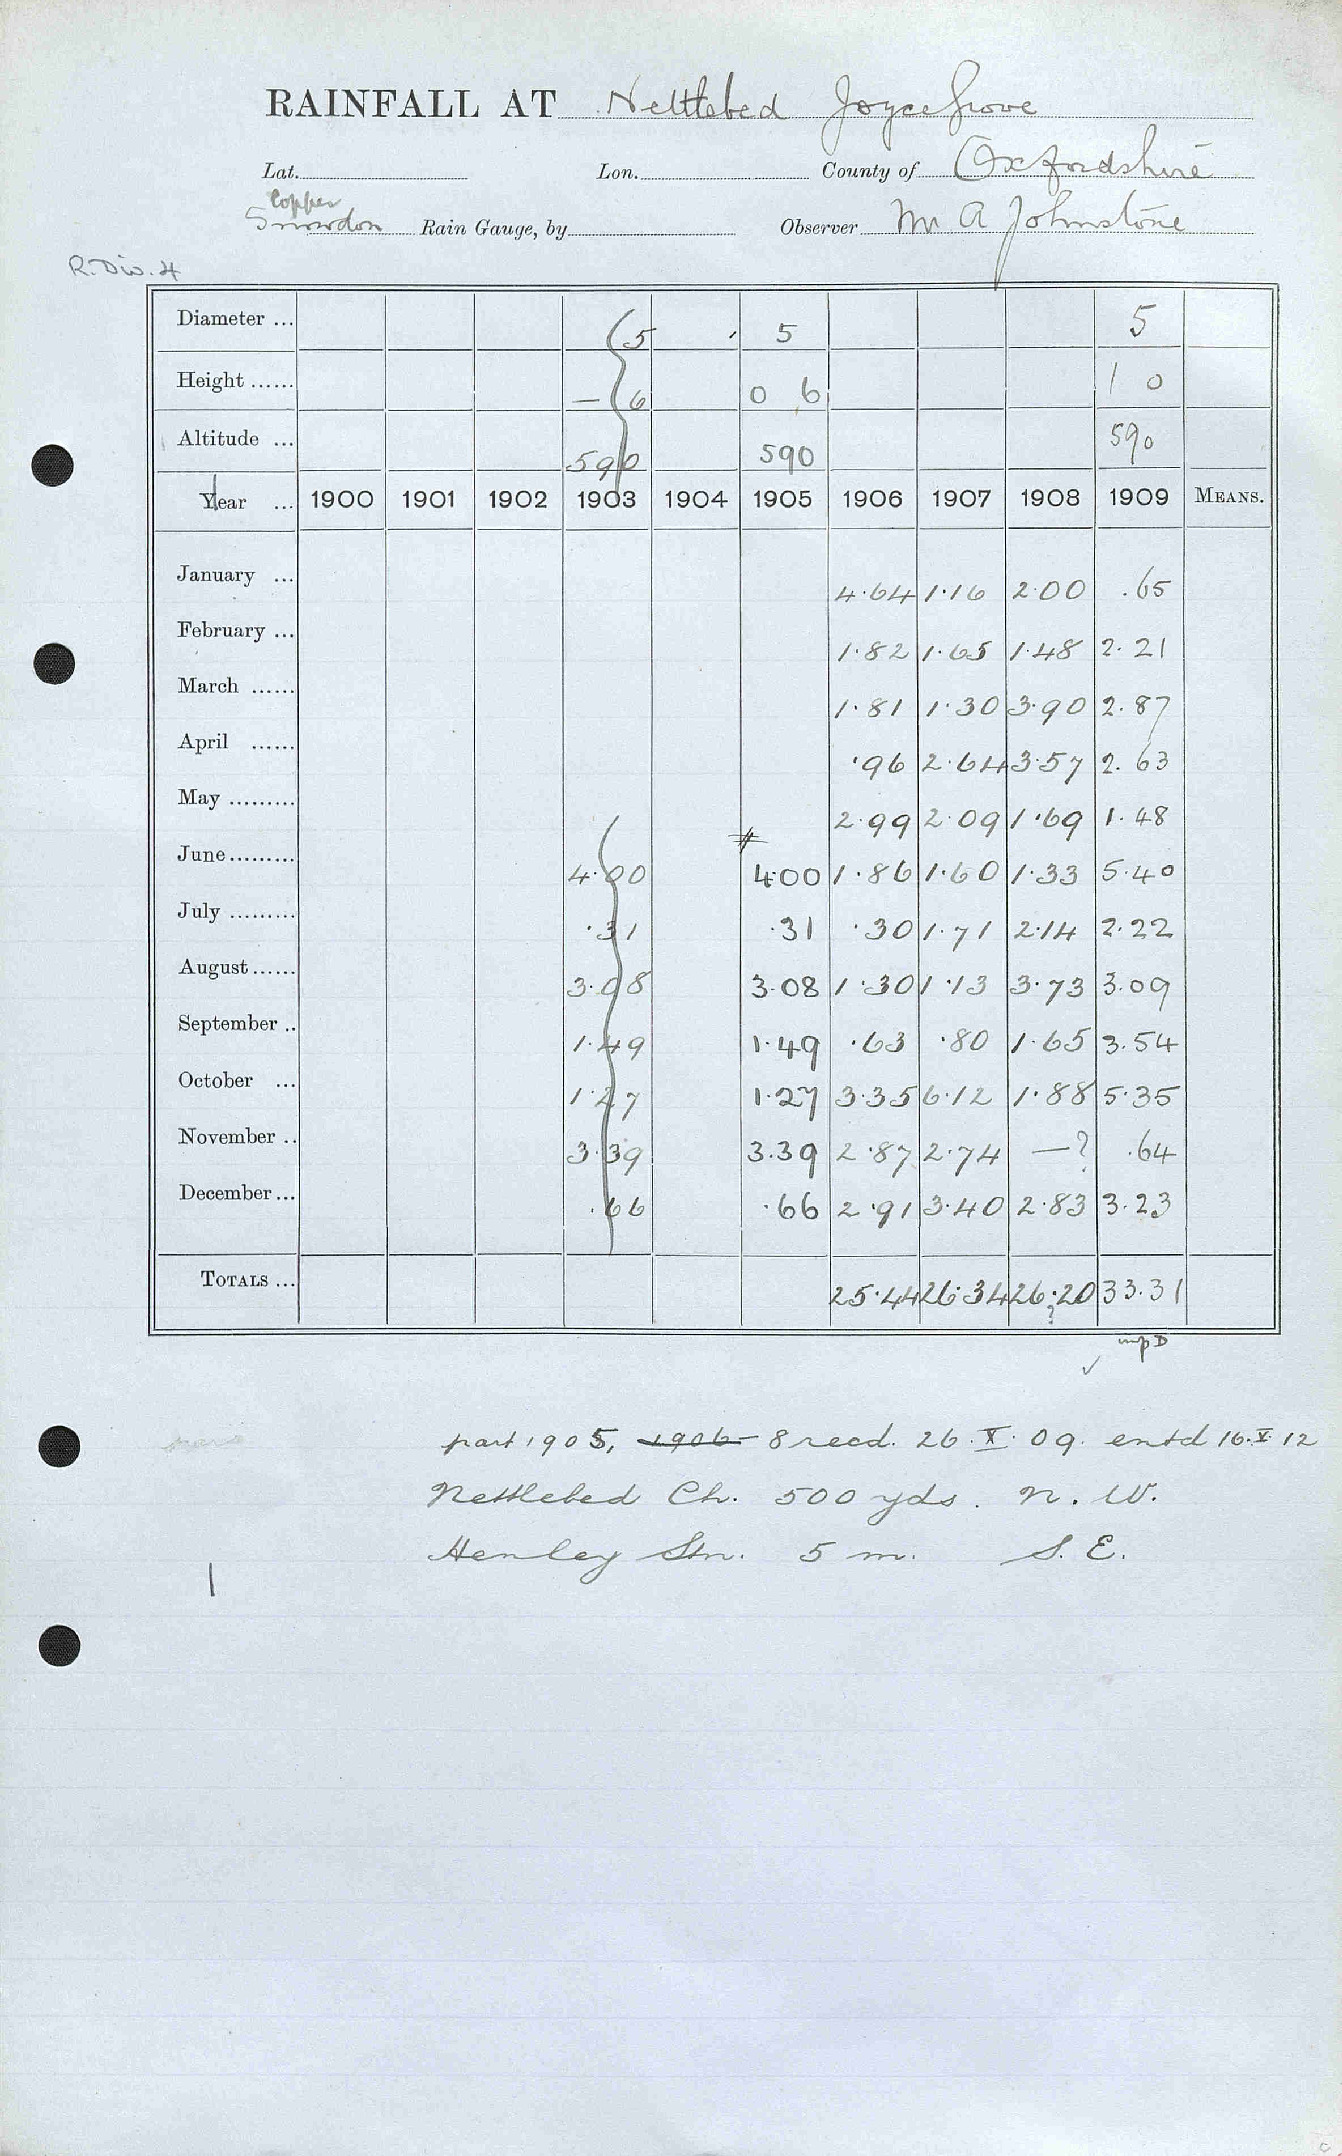 RAINFALL AT Nettlebed Joyce Grove
Lat. Lon. County of Oxfordshire
Copper
Snowdon Rain Gauge, by Observer Mr A Johnstone
R. Div. 4
Diameter ... 5 5 5
Height ...... — 6 0 6 1 0
Altitude ... 590 590 590
Year ... 1900 1901 1902 1903 1904 1905 1906 1907 1908 1909 MEANS.
January ... 4.64 1.16 2.00 .65
February ... 1.82 1.65 1.48 2.21
March ...... 1.81 1.30 3.90 2.87
April ...... .96 2.64 3.57 2.63
May ......... 2.99 2.09 1.69 1.48
June ......... 4.00 4.00 1.86 1.60 1.33 5.40
July ......... .31 .31 .30 1.71 2.14 2.22
August ...... 3.08 3.08 1.30 1.13 3.73 3.09
September .. 1.49 1.49 .63 .80 1.65 3.54
October ... 1.27 1.27 3.35 6.12 1.88 5.35
November .. 3.39 3.39 2.87 2.74 —? .64
December ... .66 .66 2.91 3.40 2.83 3.23
TOTALS ... 25.44 26.34 26.20 33.31
?
part 1905, 1906 - 8 recd. 26.X.09. entd 16.X.12
Nettlebed Ch. 500 yds. N.W.
Henley Stn. 5 m. S.E.